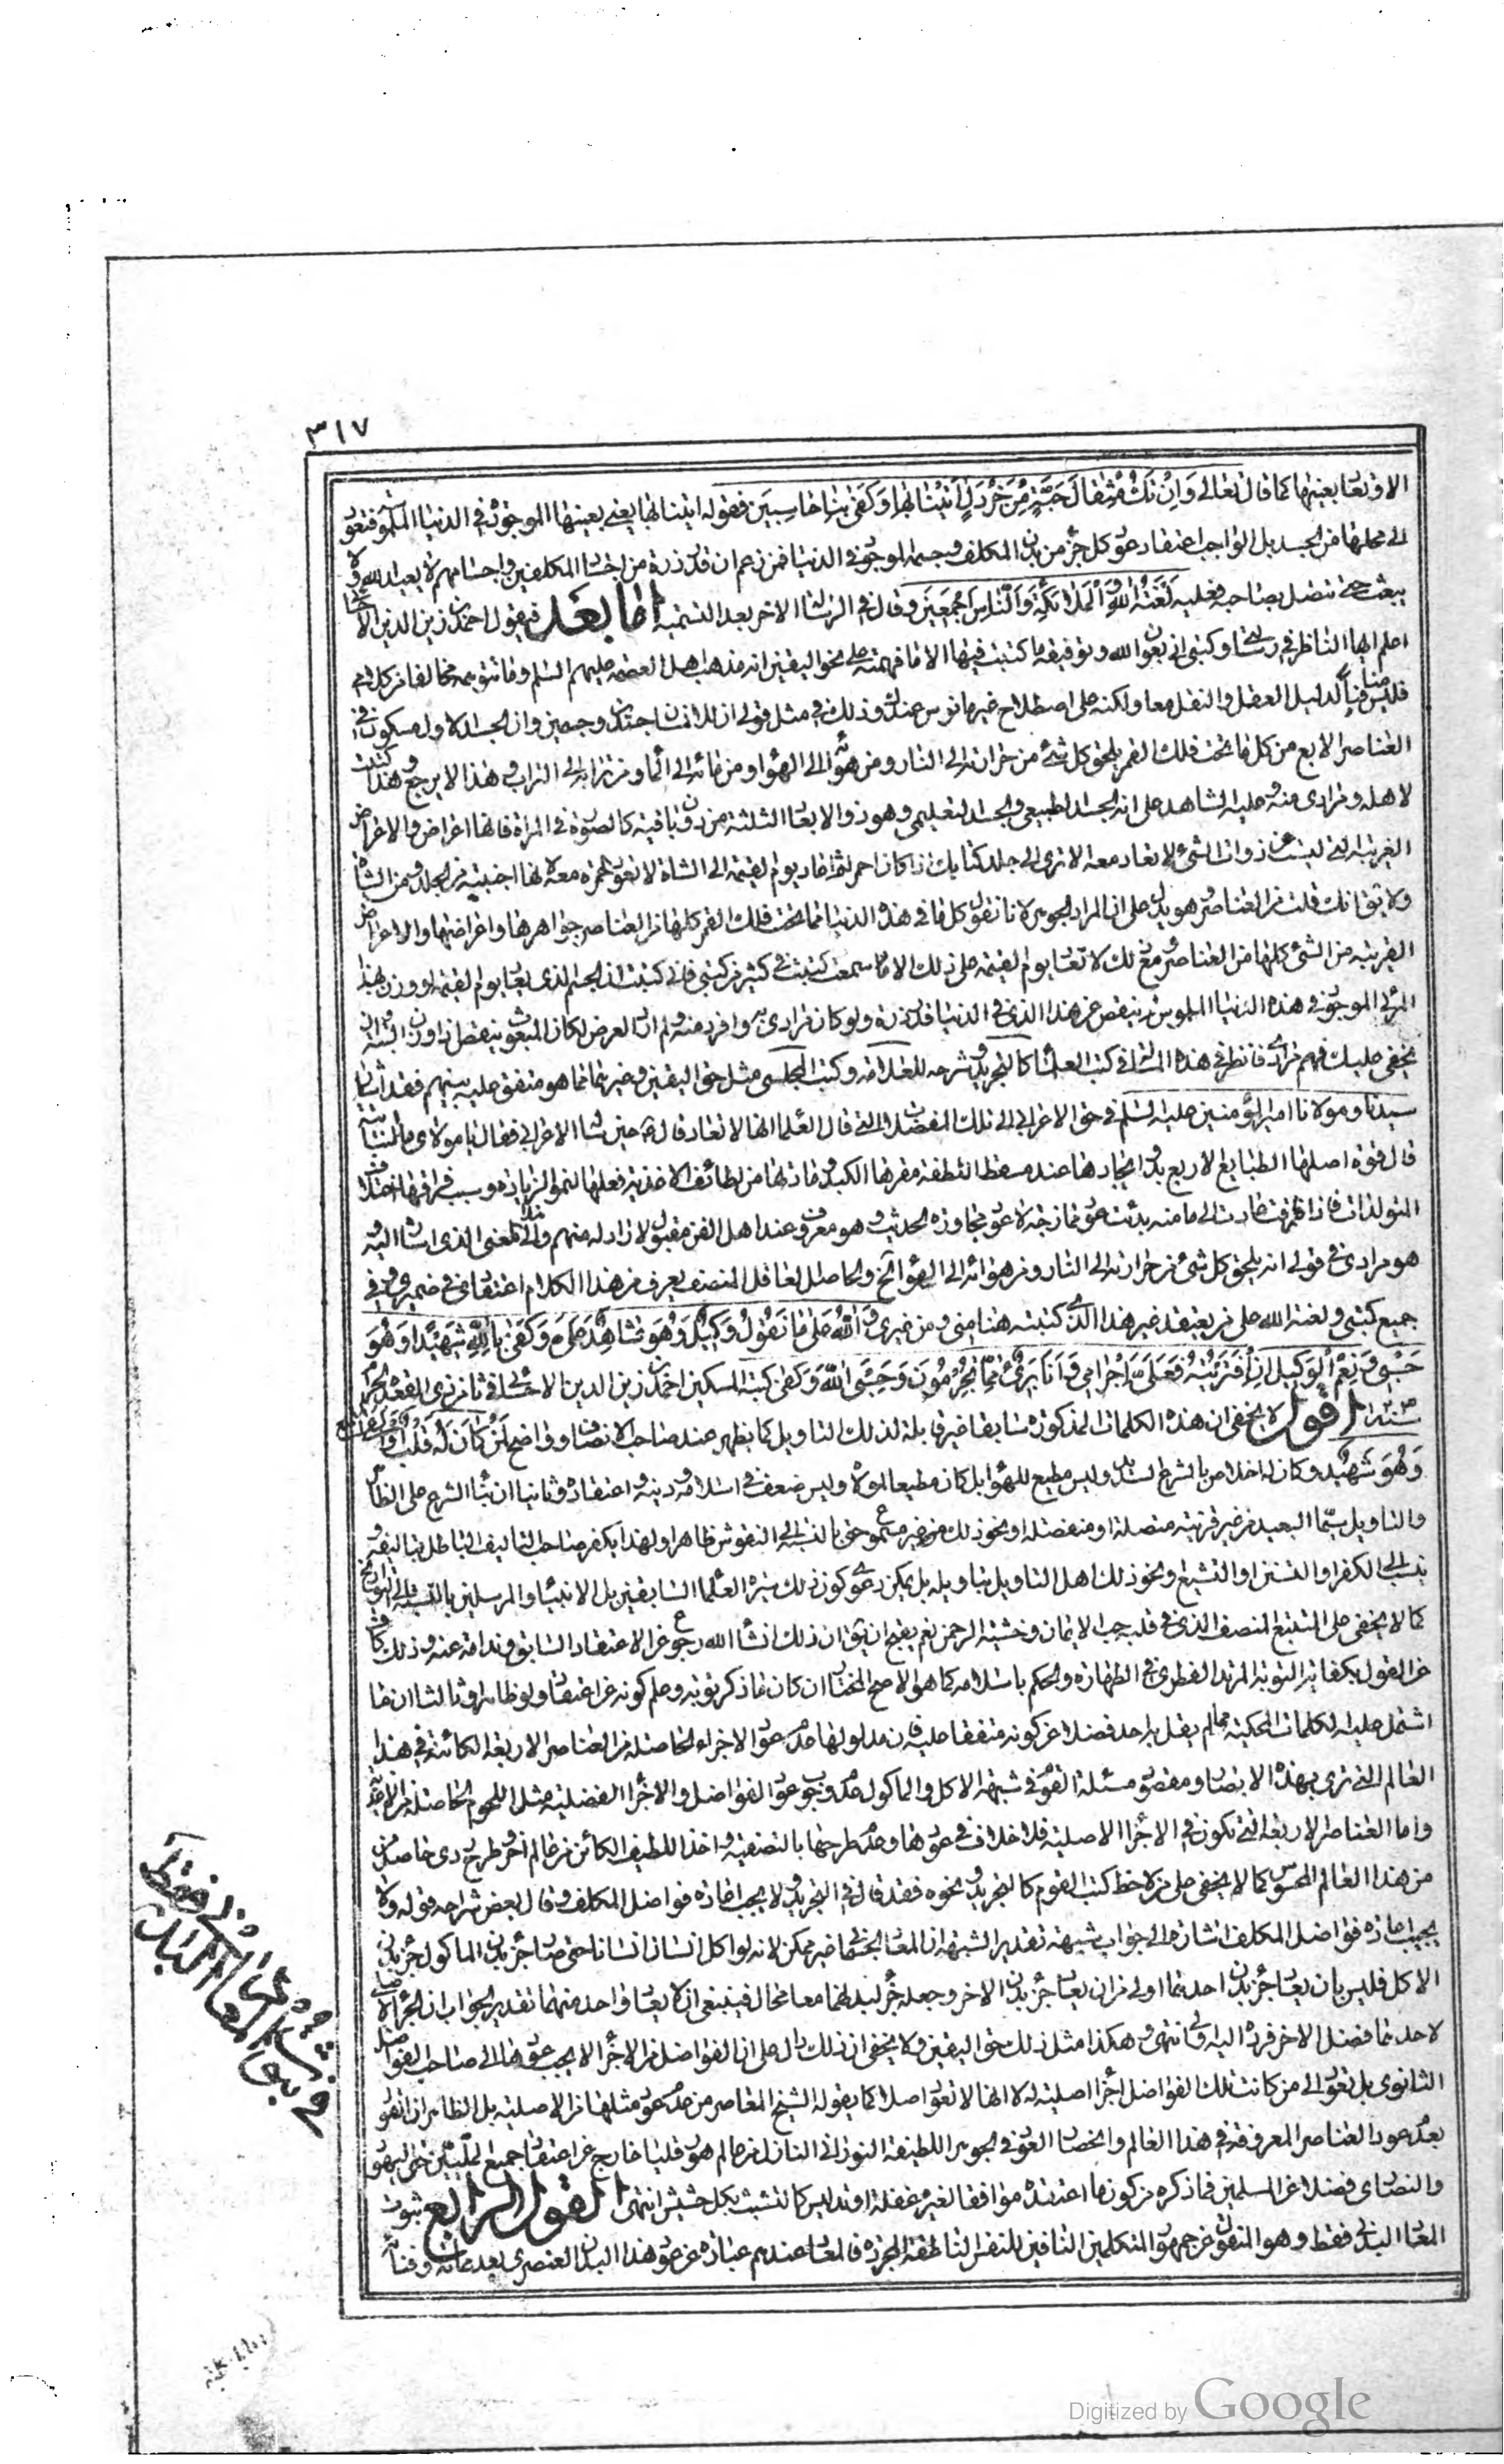 ٣١٧
الا وتعا بعينها كما قال تعالى وَاِنْ تَكُ مِثْقالَ حَبَّةٍ مِنْ خَرْدَلٍ اَتَيْنا بِها وَكَفى بِنا حاسِبينَ فقوله اتينا بها يعنى بعينها الموجودة في الدنيا
الى محلها من الجسد بل الواجب اعتقاد عود كل جزء من بدن المكلف وجسمه الموجود في الدنيا فمن زعم ان قدر ذرة من اجساد المكلفين واجسامهم لا يعيد الله ولا
يبعث حتى تتصل بصاحبه فعليه لَعْنَةُ اللهِ وَالْمَلائِكَةِ وَالنّاسِ اَجْمَعينَ وقال في الرسالة الاخر بعد التسمية اما بعد فيقول احمد بن زين الدين
اعلم ايها الناظر في رسائلى وكتبى انى بعون الله وتوفيقه ما كتبت فيها الا ما فهمته على نحو اليقين انه مذهب اهل العصمة عليهم السلم وما تتوهمه مخالفا من كلامى
فليس منافيا لدليل العقل والنقل معا ولكنه على اصطلاح غير مانوس عندك وذلك في مثل قولى ان للانسان جسدين وجسمين وان الجسد الاول مسكون من
العناصر الاربع من كل ما تحت فلك القمر يلحق كل شئ من حرارته الى النار ومن هوائه الى الهواء ومن مائه الى الماء ومن ترابه الى التراب وهذا لا يرجع
لاهله ومرادى منه وعليه الشاهد على انه الجسد الطبيعي والجسد التعليمي وهو ذو الابعاد الثلثة من دون باقية كالصورة في المراة فانها اعراض والاعراض
الغريبة التى ليست من ذوات الشئ لا تعاد معه الا ترى الى جلد كتابك اذا كان احمر لو اعاد يوم القيمة الى الشاة لا تعود حمرته معه لانها اجنبية من الجلد ومن الشاة
ولا يق انك قلت من العناصر وهو يدل على ان المراد الجوهر لانا نقول كل ما في هذه الدنيا مما تحت فلك القمر كلها من العناصر جواهرها واعراضها والاعراض
الغريبة من الشئ كلها من العناصر ومع ذلك لا تعاد يوم القيمة على ذلك الا ما سمعت كتبت في كثير من كتبى فانى كتبت ان الجسم الذى يعاد يوم القيمة لو وزن بهذا
المرئى الموجود في هذه الدنيا الملموس لم ينقص عن هذا الذى في الدنيا قدر ذرة ولو كان مرادى به
يخفى عليك فهم مرادى فانظر في هذه المسئلة في كتب العلماء كالتجريد وشرحه للعلامة وكتب المجلسى مثل حق اليقين وغيرها مما هو متفق عليه بينهم فقد اشار
سيدنا ومولانا امير المؤمنين عليه السلم في حق الاعرابى الى تلك الفضلات التى قال العلماء انها لا تعاد قال ع حين سئله الاعرابى فقال يا مولاى ما النباتية
قال قوة اصلها الطبايع الاربع بدؤ ايجادها عند مسقط النطفة مقرها الكبد مادتها من لطائف الاغذية فعلها النمو والزيادة وسبب فراقها اختلاف
المتولدات فاذا فارقت عادت الى ما منه بدئت عود ممازجة لا عود مجاورة الحديث وهو معروف وعند اهل الفن مقبول لا راد له منهم والمعنى الذى اشار اليه
هو مرادى في قولى انه يلحق كل شئ من حرارته الى النار ومن هوائه الى الهواء الخ والحاصل العاقل المنصف يعرف من هذا الكلام اعتقادى في ضميرى وفي
جميع كتبى ولعنة الله على من يعتقد غير هذا الذى كتبته هنا منى ومن غيرى وَاللهُ عَلى ما نَقُولُ وَكيلٌ وَهُوَ شاهِدٌ عَلَىَّ وَكَفى بِاللهِ شَهيدًا وَهُوَ
حَسْبى وَنِعْمَ الْوَكيلُ اِنِ افْتَرَيْتُهُ فَعَلَىَّ اِجْرامى وَاَنَا بَرىءٌ مِمّا تُجْرِمُونَ وَحَسْبِىَ اللهُ وَكَفى كتبه المسكين احمد بن زين الدين الاحسائى في ثامن ذى القعدة الحرام
اقول لا يخفى ان هذه الكلمات المذكورة سابقا غير قابلة لذلك التاويل كما يظهر عند صاحب الانصاف وواضح لِمَنْ كانَ لَهُ قَلْبٌ
وَهُوَ شَهيدٌ وكان له اخلاص بالشرع السديد وليس مطيع للهوا بل كان مطيعا لمولاه وليس ضعف في اسلامه ودينه واعتقاده وثانيا ان بناء الشرع على الظاهر
والتاويل سيما البعيد من غير قرينة متصلة او منفصلة او نحو ذلك غير مسموع حتى بالنسبة الى النفوس ظاهرا ولهذا يكفر صاحب التاليف الباطل بتاليفه
ينسب الى الكفر او التسنن او التشيع ونحو ذلك اهل التاويل بتاويله بل يمكن دعوى كون ذلك سيرة العلماء السابقين بل الانبياء والمرسلين
كما لا يخفى على المتتبع المنصف الذى في قلبه حب الايمان وخشية الرحمن نعم يفتح ان يق ان ذلك انشاء الله رجوع عن الاعتقاد السابق وندامة عنه وذلك
عن القول بكفاية التوبة المرتد الفطرى في الطهارة والحكم باسلامه كما هو الاصح المختار ان كان ما ذكر توبة وعلم كونه عن اعتقاد ولو ظاهرا وثالثا ان ما
اشتمل عليه الكلمات المحكية مما لم يقل به احد فضلا عن كونه متفقا عليه فان مدلولها عدم عود الاجزاء الحاصلة من العناصر الاربعة الكائنة في هذا
العالم التى ترى بهذه الابصار ومقصود مسئلة القوم في شبهة الاكل والماكول عدم وجوب عود الفواضل والاجزاء الفضلية مثل اللحوم الحاصلة من الاغذية
واما العناصر الاربعة التى تكون في الاجزاء الاصلية فلا خلاف في عودها وعدم طرحها بالتصفية واخذ اللطيف الكائن من عالم اخر وطرح ردى حاصل من
من هذا العالم المحسوس كما لا يخفى على من لاحظ كتب القوم كالتجريد ونحوه فقد قال في التجريد ولا يجب اعادة فواضل المكلف وقال بعض شراحه قوله ولا
يجب اعادة فواضل المكلف اشارة الى جواب شبهة تقدير الشبهة ان المعاد الجسمانى غير ممكن لانه لو اكل انسان انسانا حتى صار جزء بدن الماكول جزء بدن
الاكل فليس بان يعاد جزء بدن احدهما اولى من ان يعاد جزء بدن الاخر وجعله جزء لبدنهما معا محال فينبغى ان لا يعاد واحد منهما تقدير الجواب ان الجزء الاصلى
لاحدهما فضل الاخر فرده اليه اولى انتهى وهكذا مثل ذلك حق اليقين ولا يخفى ان ذلك دال على ان الفواضل من الاجزاء لا يجب عودها الى صاحب الفواضل
الثانوى بل تعود الى من كانت تلك الفواضل اجزاء اصلية له لا انها لا تعود اصلا كما يقوله الشيخ المعاصر من عدم عود مثلها من الاصلية بل الظاهر ان القول
بعدم عود العناصر المعروفة في هذا العالم وانحصار العود في الجوهر اللطيفة النورانى النازل من عالم هورقليا خارج عن اعتقاد جميع المليين حتى اليهود
والنصارى فضلا عن المسلمين فما ذكره من كون ما اعتقده موافقا لغيره غفلة او تدليس كما تتشبث بكل حشيش انتهى القول الرابع ثبوت
المعاد البدنى فقط وهو المنقول عن جمهور المتكلمين النافين للنفس الناطقة المجردة فالمعاد عندهم عبارة عن عود هذا البدن العنصرى بعد مماته وفنائه
Digitized by Google